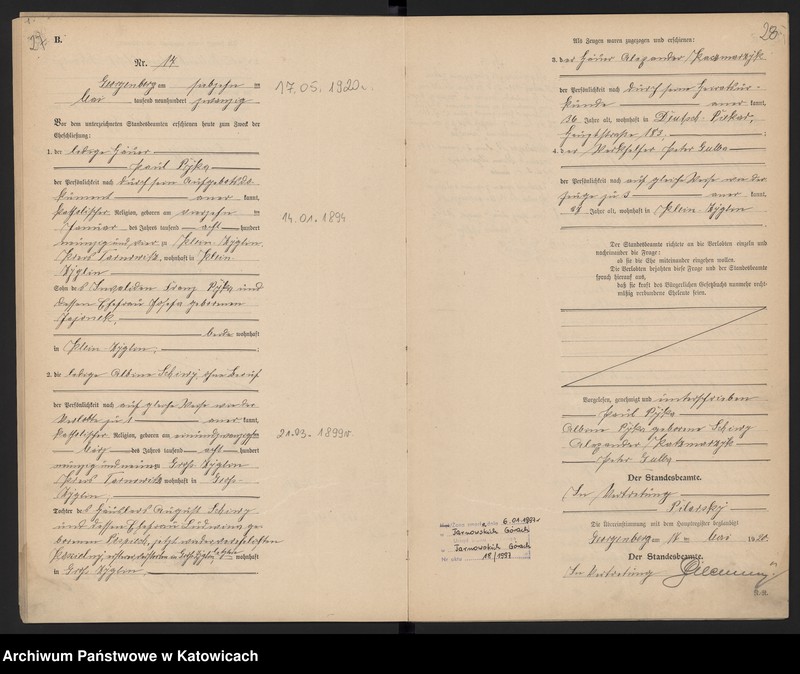 27
B.
Nr. 14
Georgenberg am siebzehn ten
Mai tausend neunhundert zwanzig
17.05.1920 r.
Vor dem unterzeichneten Standesbeamten erschienen heute zum Zweck der
Eheschließung:
1. der ledige Häuer
Paul Pyka
der Persönlichkeit nach durch sein Aufgebotsdo-
kument aner kannt,
katholischer Religion, geboren am vierzehn ten
Januar des Jahres tausend acht hundert
neunzig und vier zu Klein Zyglin
Kreis Tarnowitz, wohnhaft in Klein
Zyglin
14.01.1894
Sohn des Invaliden Franz Pyka und
dessen Ehefrau Josefa geborenen
beide wohnhaft
in Klein Zyglin;
2. die ledige Albine ohne Beruf
der Persönlichkeit nach auf gleiche Weise wie der
Verlobte zu 1 aner kannt,
katholischer Religion, geboren am einundzwanzigsten
März des Jahres tausend acht hundert
neunzig und neun zu Groß-Zyglin
Kreis Tarnowitz wohnhaft in Groß-
Zyglin,
21.03.1899 r.
Tochter des Häuslers August
und dessen Ehefrau Ludwina ge-
borenen jetzt wiederverehelichten
wohnhaft
in Groß Zyglin
28
Als Zeugen waren zugezogen und erschienen:
3. der Häuer Alexander Kaczmarzyk
der Persönlichkeit nach durch seine Heiratsur-
kunde aner kannt,
36 Jahre alt, wohnhaft in Deutsch-Piekar,
Hauptstraße 183;
4. der Peter Gulba
der Persönlichkeit nach auf gleiche Weise wie der
Zeuge zu 3 aner kannt,
Jahre alt, wohnhaft in Klein Zyglin
Der Standesbeamte richtete an die Verlobten einzeln und
nacheinander die Frage:
ob sie die Ehe miteinander eingehen wollen.
Die Verlobten bejahten diese Frage und der Standesbeamte
sprach hierauf aus,
daß sie kraft des Bürgerlichen Gesetzbuchs nunmehr recht-
mäßig verbundene Eheleute seien.
Vorgelesen, genehmigt und unterschrieben
Paul Pyka
Albine Pyka geborene
Alexander Kaczmarzyk
Peter Gulba
Der Standesbeamte.
In Vertretung
Pilarsky
Die Übereinstimmung mit dem Hauptregister beglaubigt
Georgenberg am 17 ten Mai 1920.
Der Standesbeamte.
In Vertretung
6.01.1997 r
Tarnowskich Górach
Tarnowskich Górach
Nr aktu 18/1997
Archiwum Państwowe w Katowicach